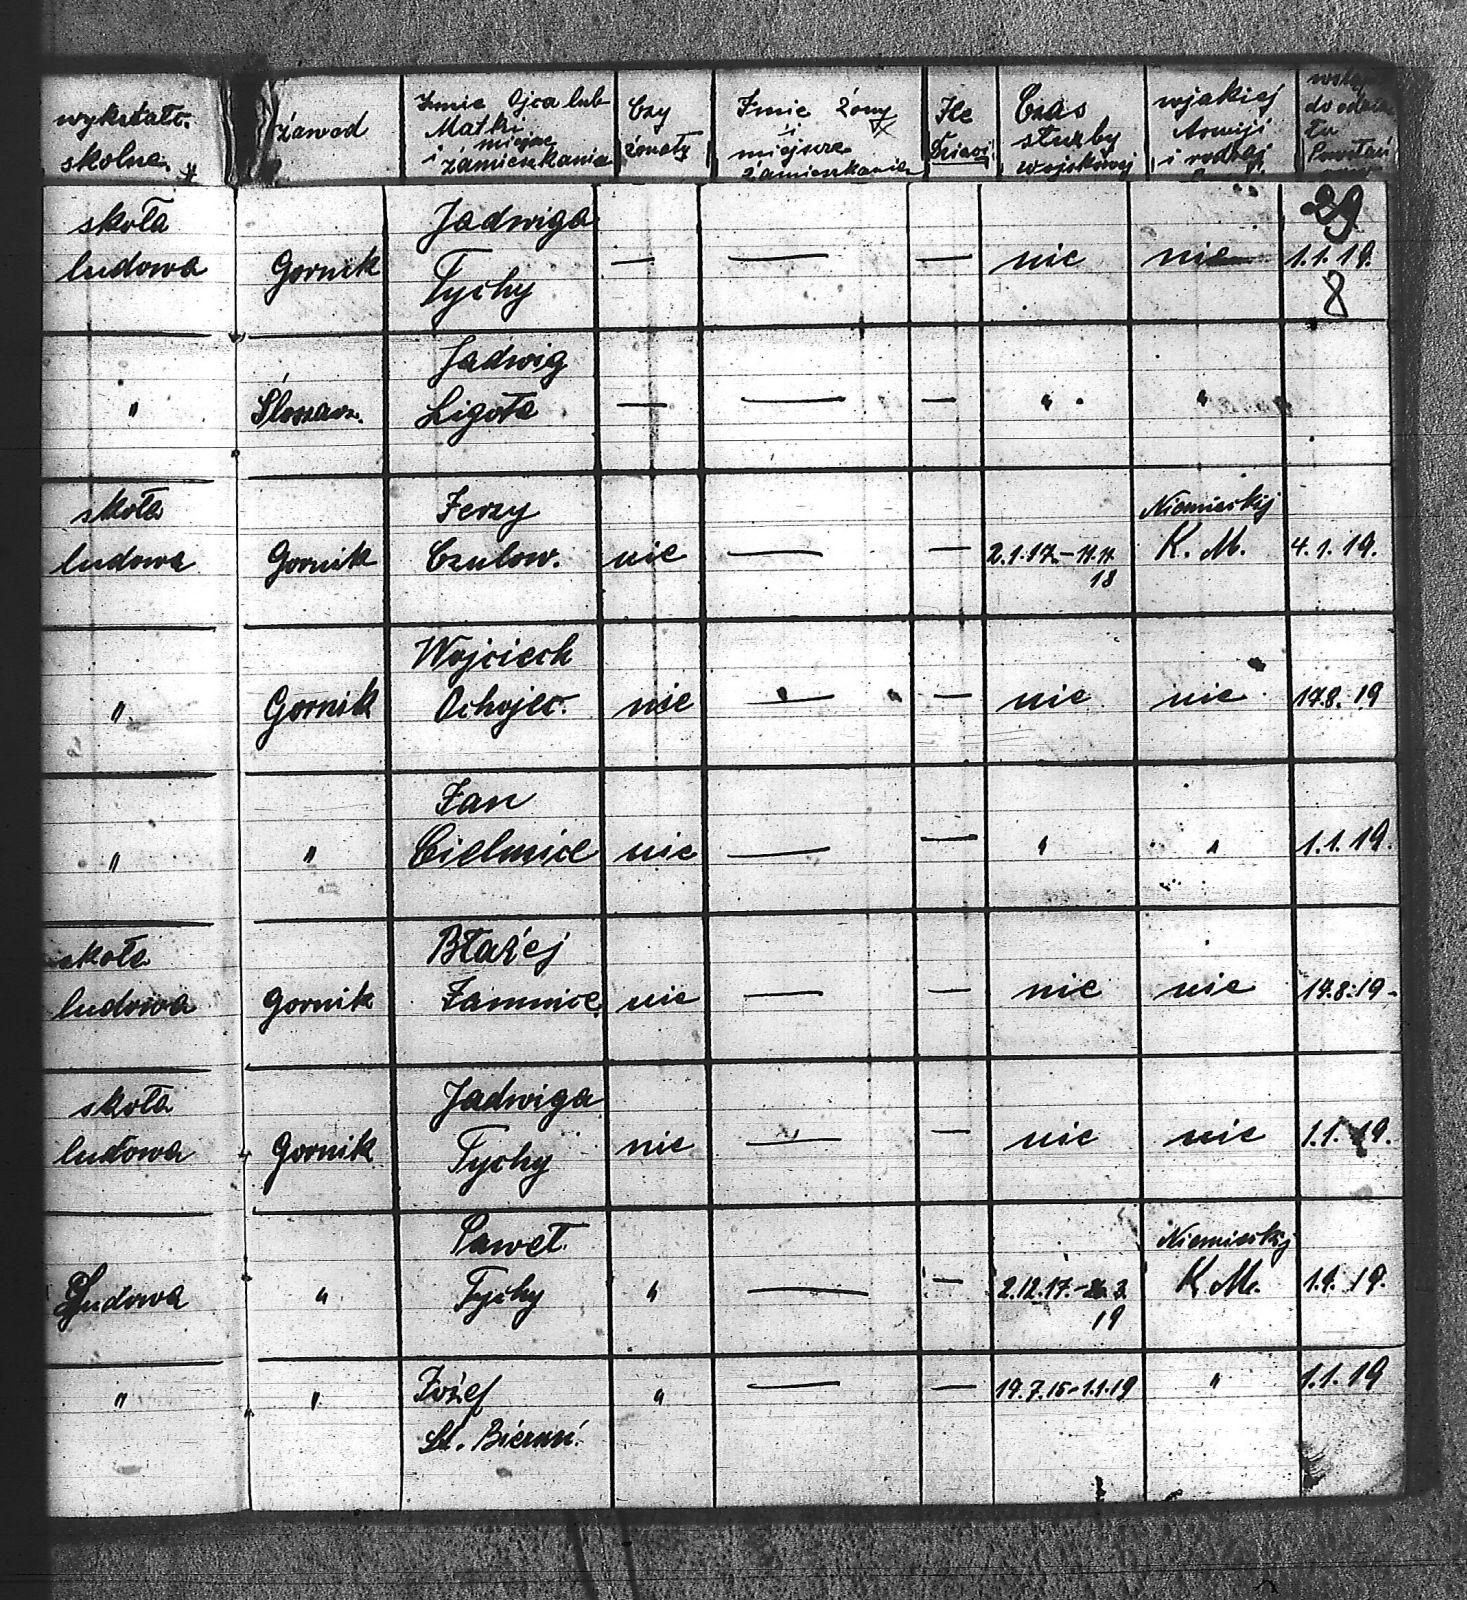 wykstałc.
skolne
żawod
Imie Ojca lub
Matki
i miejsce
zámieszkania
Czy
żonaty
Imie żony
i
miejsce
zámieszkania
Ile
Dzieci
Czas
służby
wojskowej
wjakiej
Armiji
i rodzaj
do oddzia
Powstań
29
skoła
ludowa
Gornik
Jadwiga
Tychy
— — —
nic
nic
1.1.19.
8
"
Ślosarz.
Jadwig
Ligota
— — —
" "
skoła
ludowa
Gornik
Jerzy
Czulow.
nie
— —
2.1.17.-17.11
18
Niemieckij
K. M.
4.1.19.
"
Gornik
Wojciech
Ochojec.
nie
— —
nic
nic
17.8.19
"
"
Jan
Cielmice
nie
— —
"
"
1.1.19.
skoła
ludowa
Gornik
Błażej
Jamnice
nie
— —
nic
nic
17.8.19-
skoła
ludowa
Gornik
Jadwiga
Tychy
nie
— —
nic
nic
1.1.19.
Ludowa
"
Paweł.
Tychy
"
— —
2.12.17.-26.3.
19
Niemieckij
K.M.
1.1.19.
"
"
Jożef
St. Bieruń.
"
— —
19.7.15-1.1.19
"
1.1.19